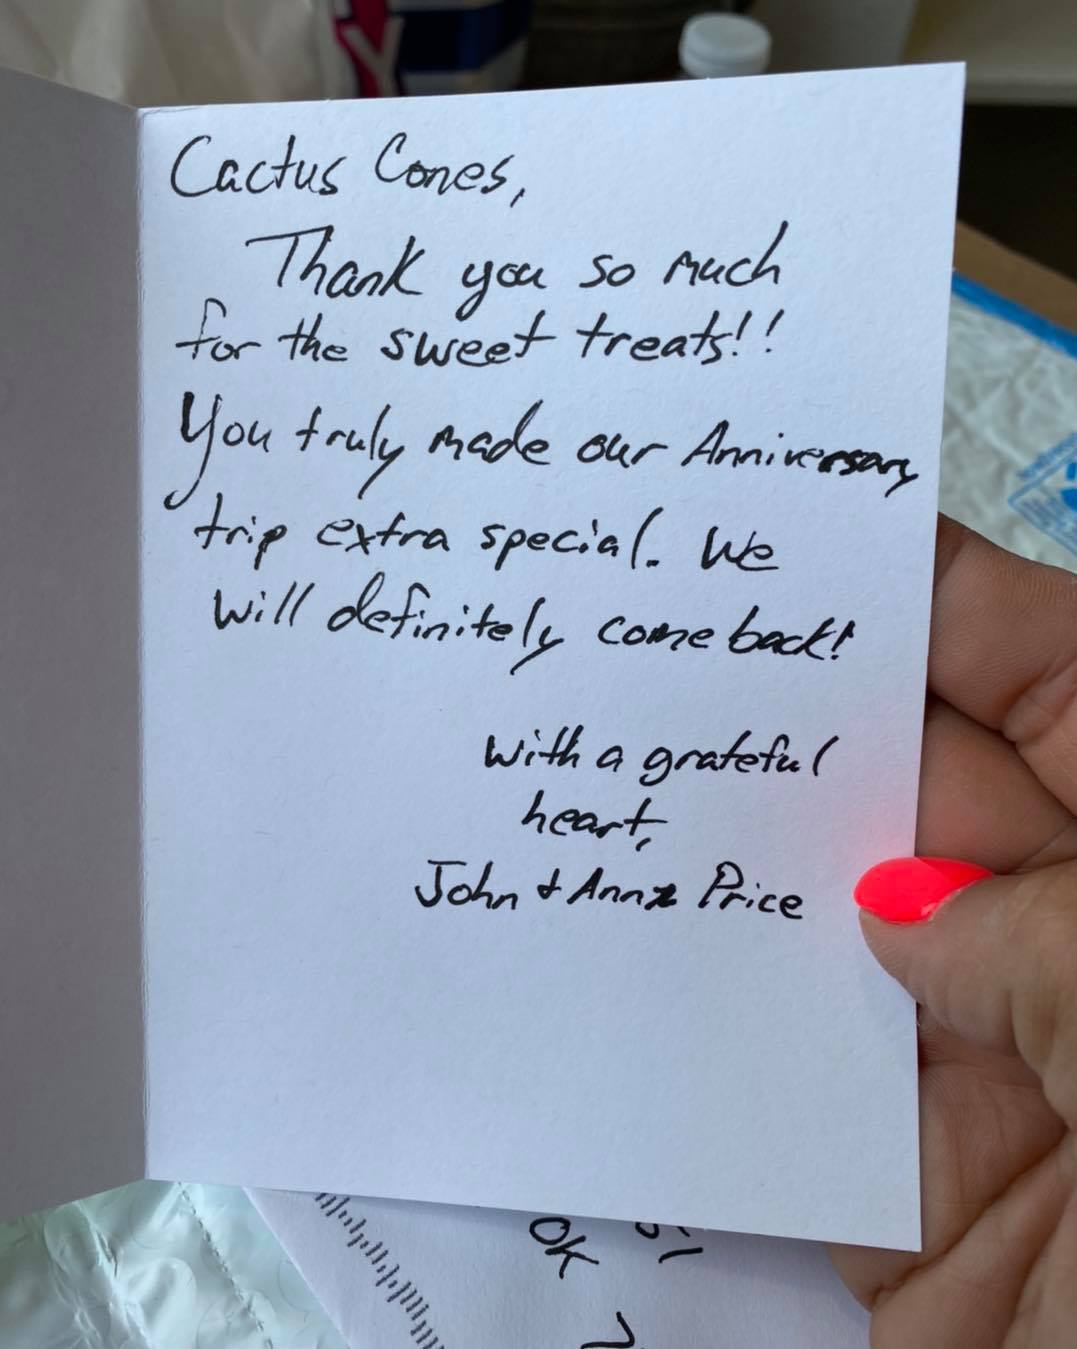 Cactus Cones,
Thank you so much
for the sweet treats!!
You truly made our Anniversary
trip extra special. We
will definitely come back!
With a grateful
heart,
John + Anna Price
OK